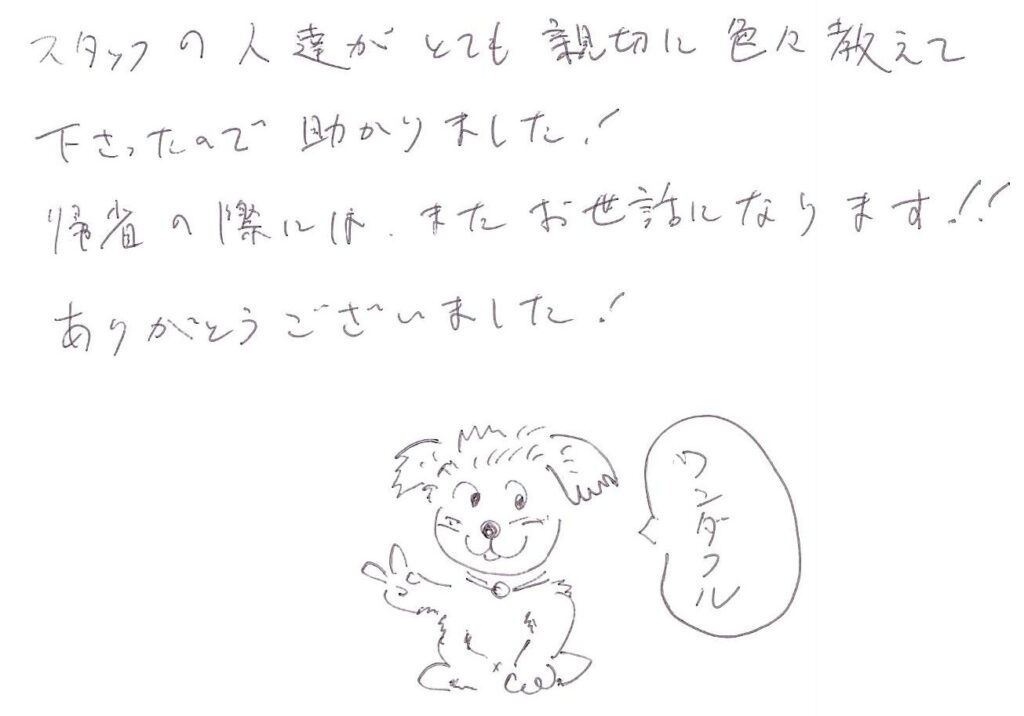 スタッフの人達がとても親切に色々教えて
下さったので助かりました！
帰省の際には、またお世話になります！！
ありがとうございました！
ワンダフル